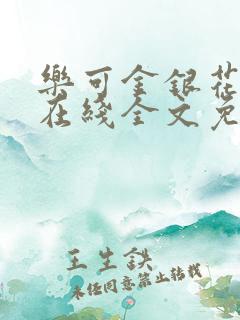 樂可金銀花
在綫全文免
王生鉄
未经同意禁止转载